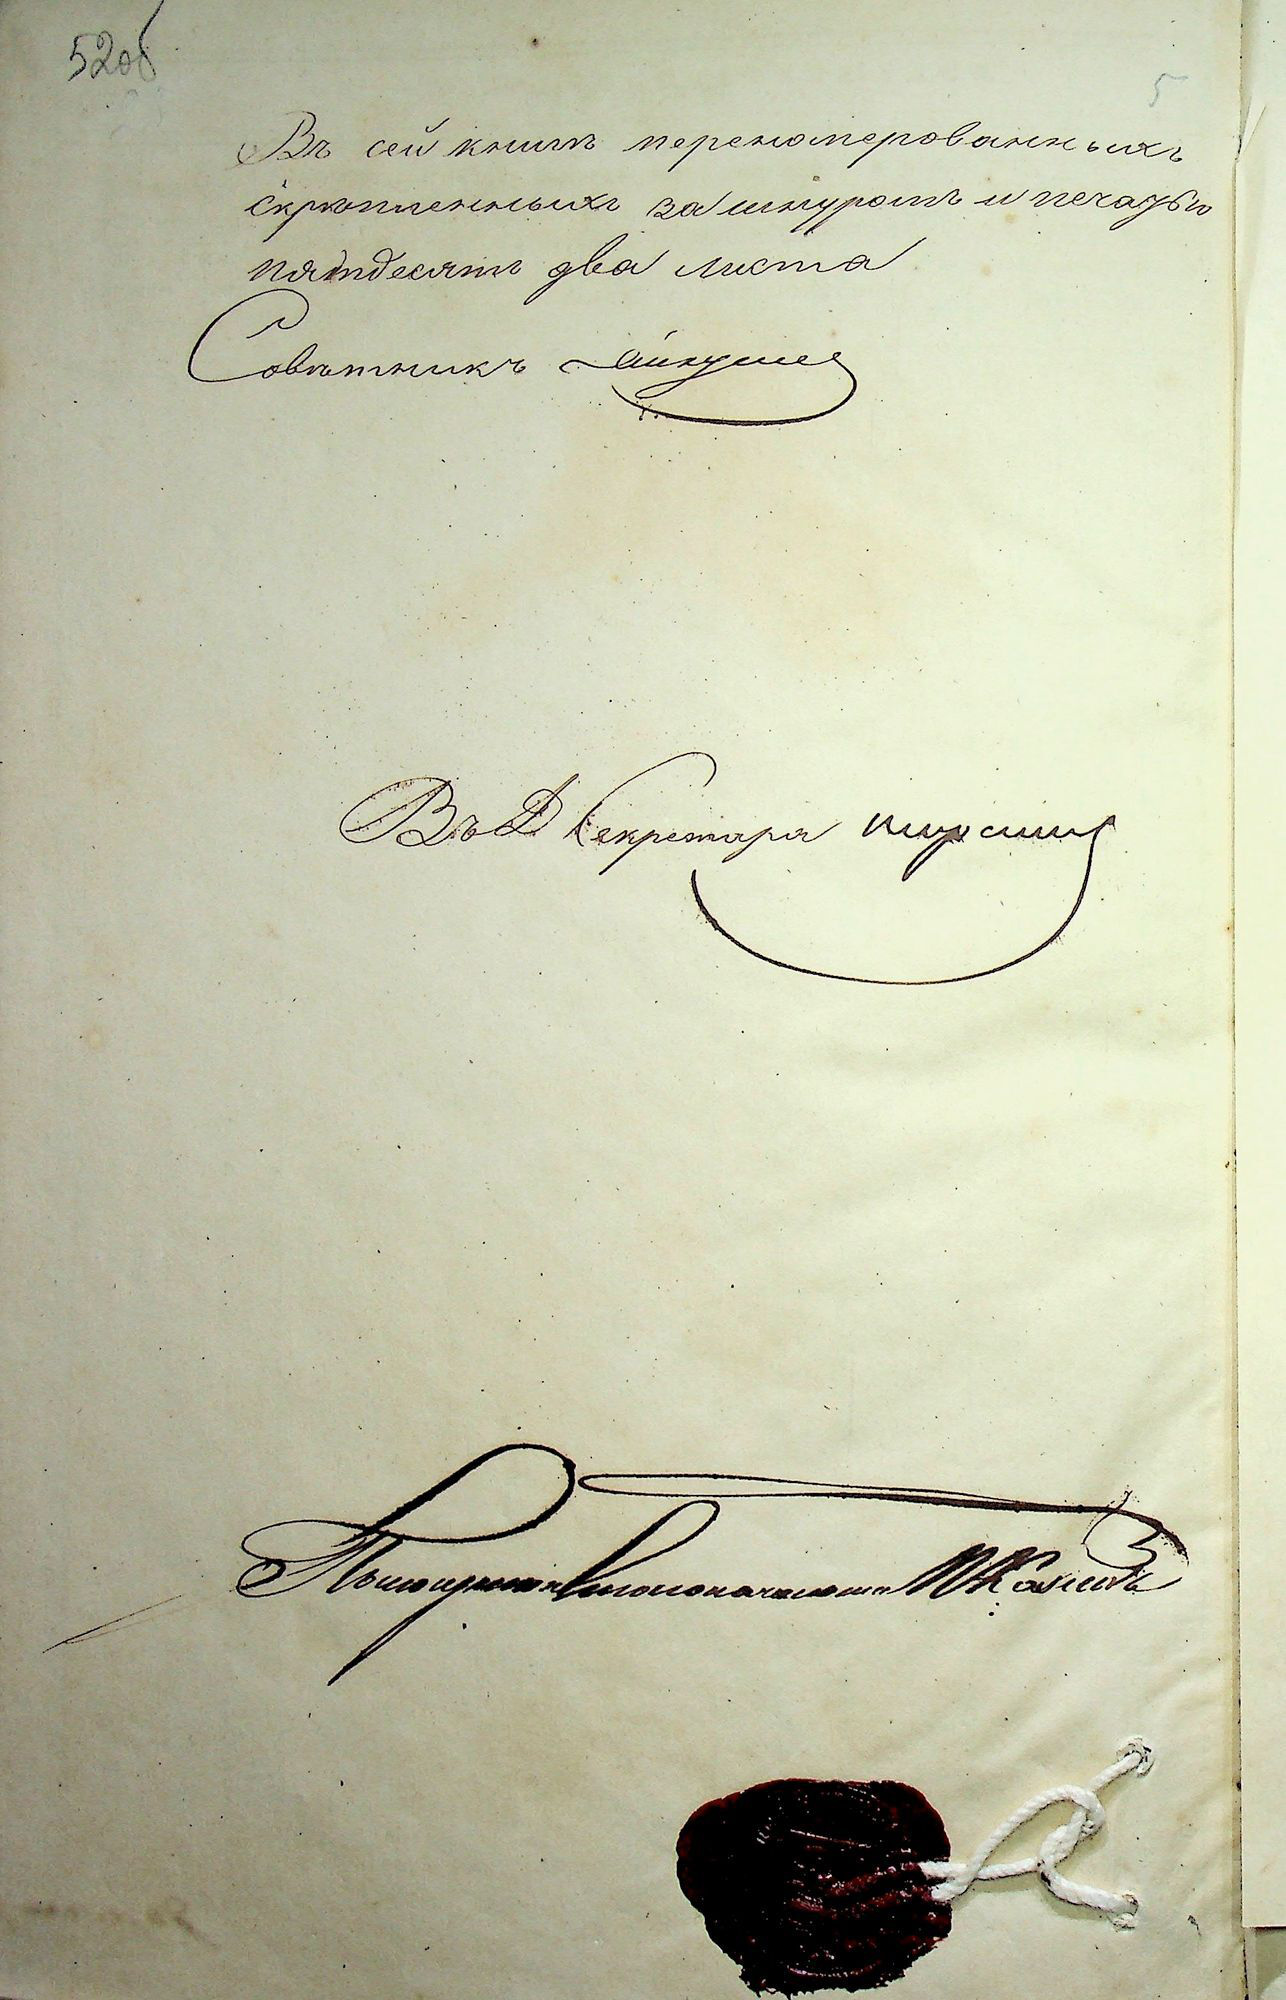 52об
5
Въ сей книгѣ переномерованныхъ
скрѣпленныхъ за шнуромъ и печатью
пятдесятъ два листа
Совѣтникъ
Въ Д Секретаря
Столоначальника